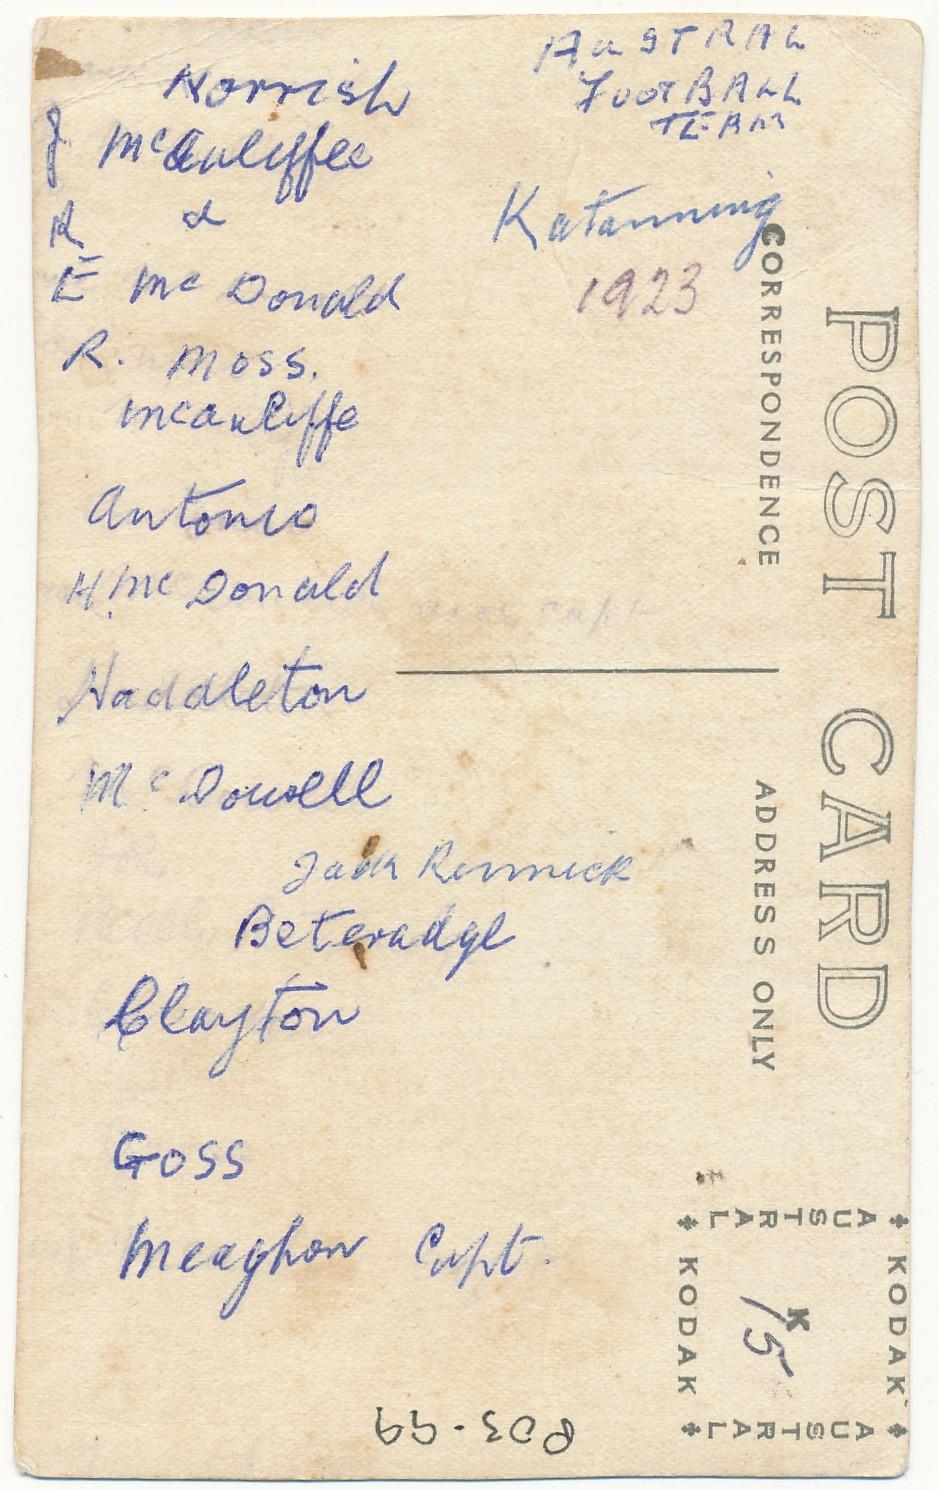 AUSTRAL
FOOTBALL
TEAM
Katanning
1923
Norrish
J McAuliffee
R d
E Mc Donald
R. Moss.
McAuliffe
Antonio
H. Mc Donald
Haddleton
Mc Dowell
Jack Rennick
Beteradge
Clayton
Goss
Meaghon Capt.
POST CARD
CORRESPONDENCE
ADDRESS ONLY
AUSTRAL
KODAK
K
15
KODAK
AUSTRAL
P03-99